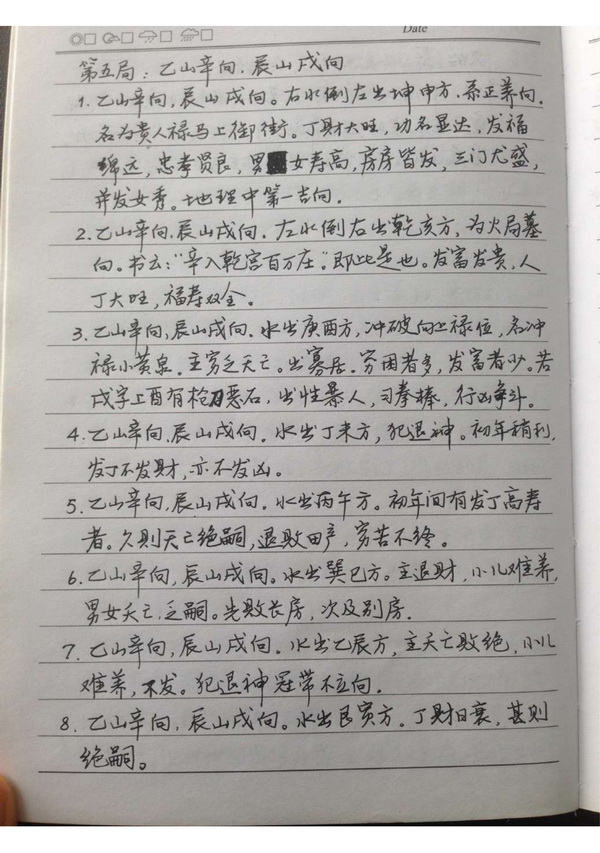 Date
第五局：乙山辛向．辰山戌向
1. 乙山辛向，辰山戌向。右水倒左出坤申方．系正养向．
名为贵人禄马上御街。丁财大旺，功名显达，发福
绵远，忠孝贤良，男女寿高，房房皆发，三门尤盛，
并发女秀。地理中第一吉向．
2. 乙山辛向．辰山戌向．左水倒右出乾亥方，为火局墓
向。书云："辛入乾宫百万庄．"即此是也。发富发贵，人
丁大旺，福寿双全．
3. 乙山辛向，辰山戌向．水出庚酉方，冲破向上禄位，名冲
禄小黄泉．主穷乏夭亡。出寡居．穷困者多，发富者少。若
戌字上酉有枪刀恶石，出性暴人，习拳棒，行凶争斗．
4. 乙山辛向，辰山戌向．水出丁未方，犯退神。初年稍利，
发丁不发财，亦不发凶。
5. 乙山辛向，辰山戌向．水出丙午方。初年间有发丁高寿
者。久则夭亡绝嗣，退败田产，穷苦不终。
6. 乙山辛向，辰山戌向。水出巽巳方。主退财，小儿难养，
男女夭亡，乏嗣。先败长房，次及别房．
7. 乙山辛向，辰山戌向．水出乙辰方，主夭亡败绝，小儿
难养，不发。犯退神冠带不立向．
8. 乙山辛向，辰山戌向。水出艮寅方．丁财日衰，甚则
绝嗣。